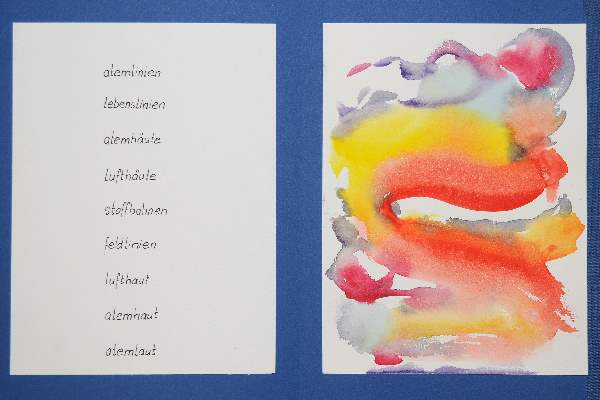 atemlinien
lebenslinien
atemhäute
lufthäute
stoffbahnen
feldlinien
lufthaut
atemhaut
atemlaut